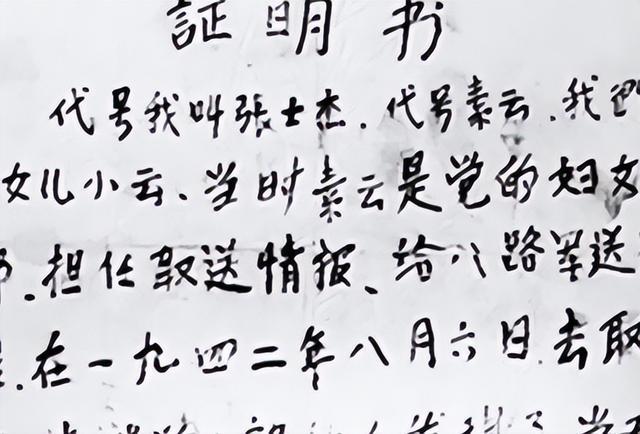 証明书
代号我叫张士杰.代号素云.我
女儿小云、当时素云是党的妇女
.担任取送情报、给八路军送
.在一九四二年八月六日去取